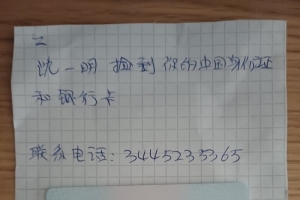 二
沈一明 捡到 你的中国身份证
和银行卡
联系电话：3445235365